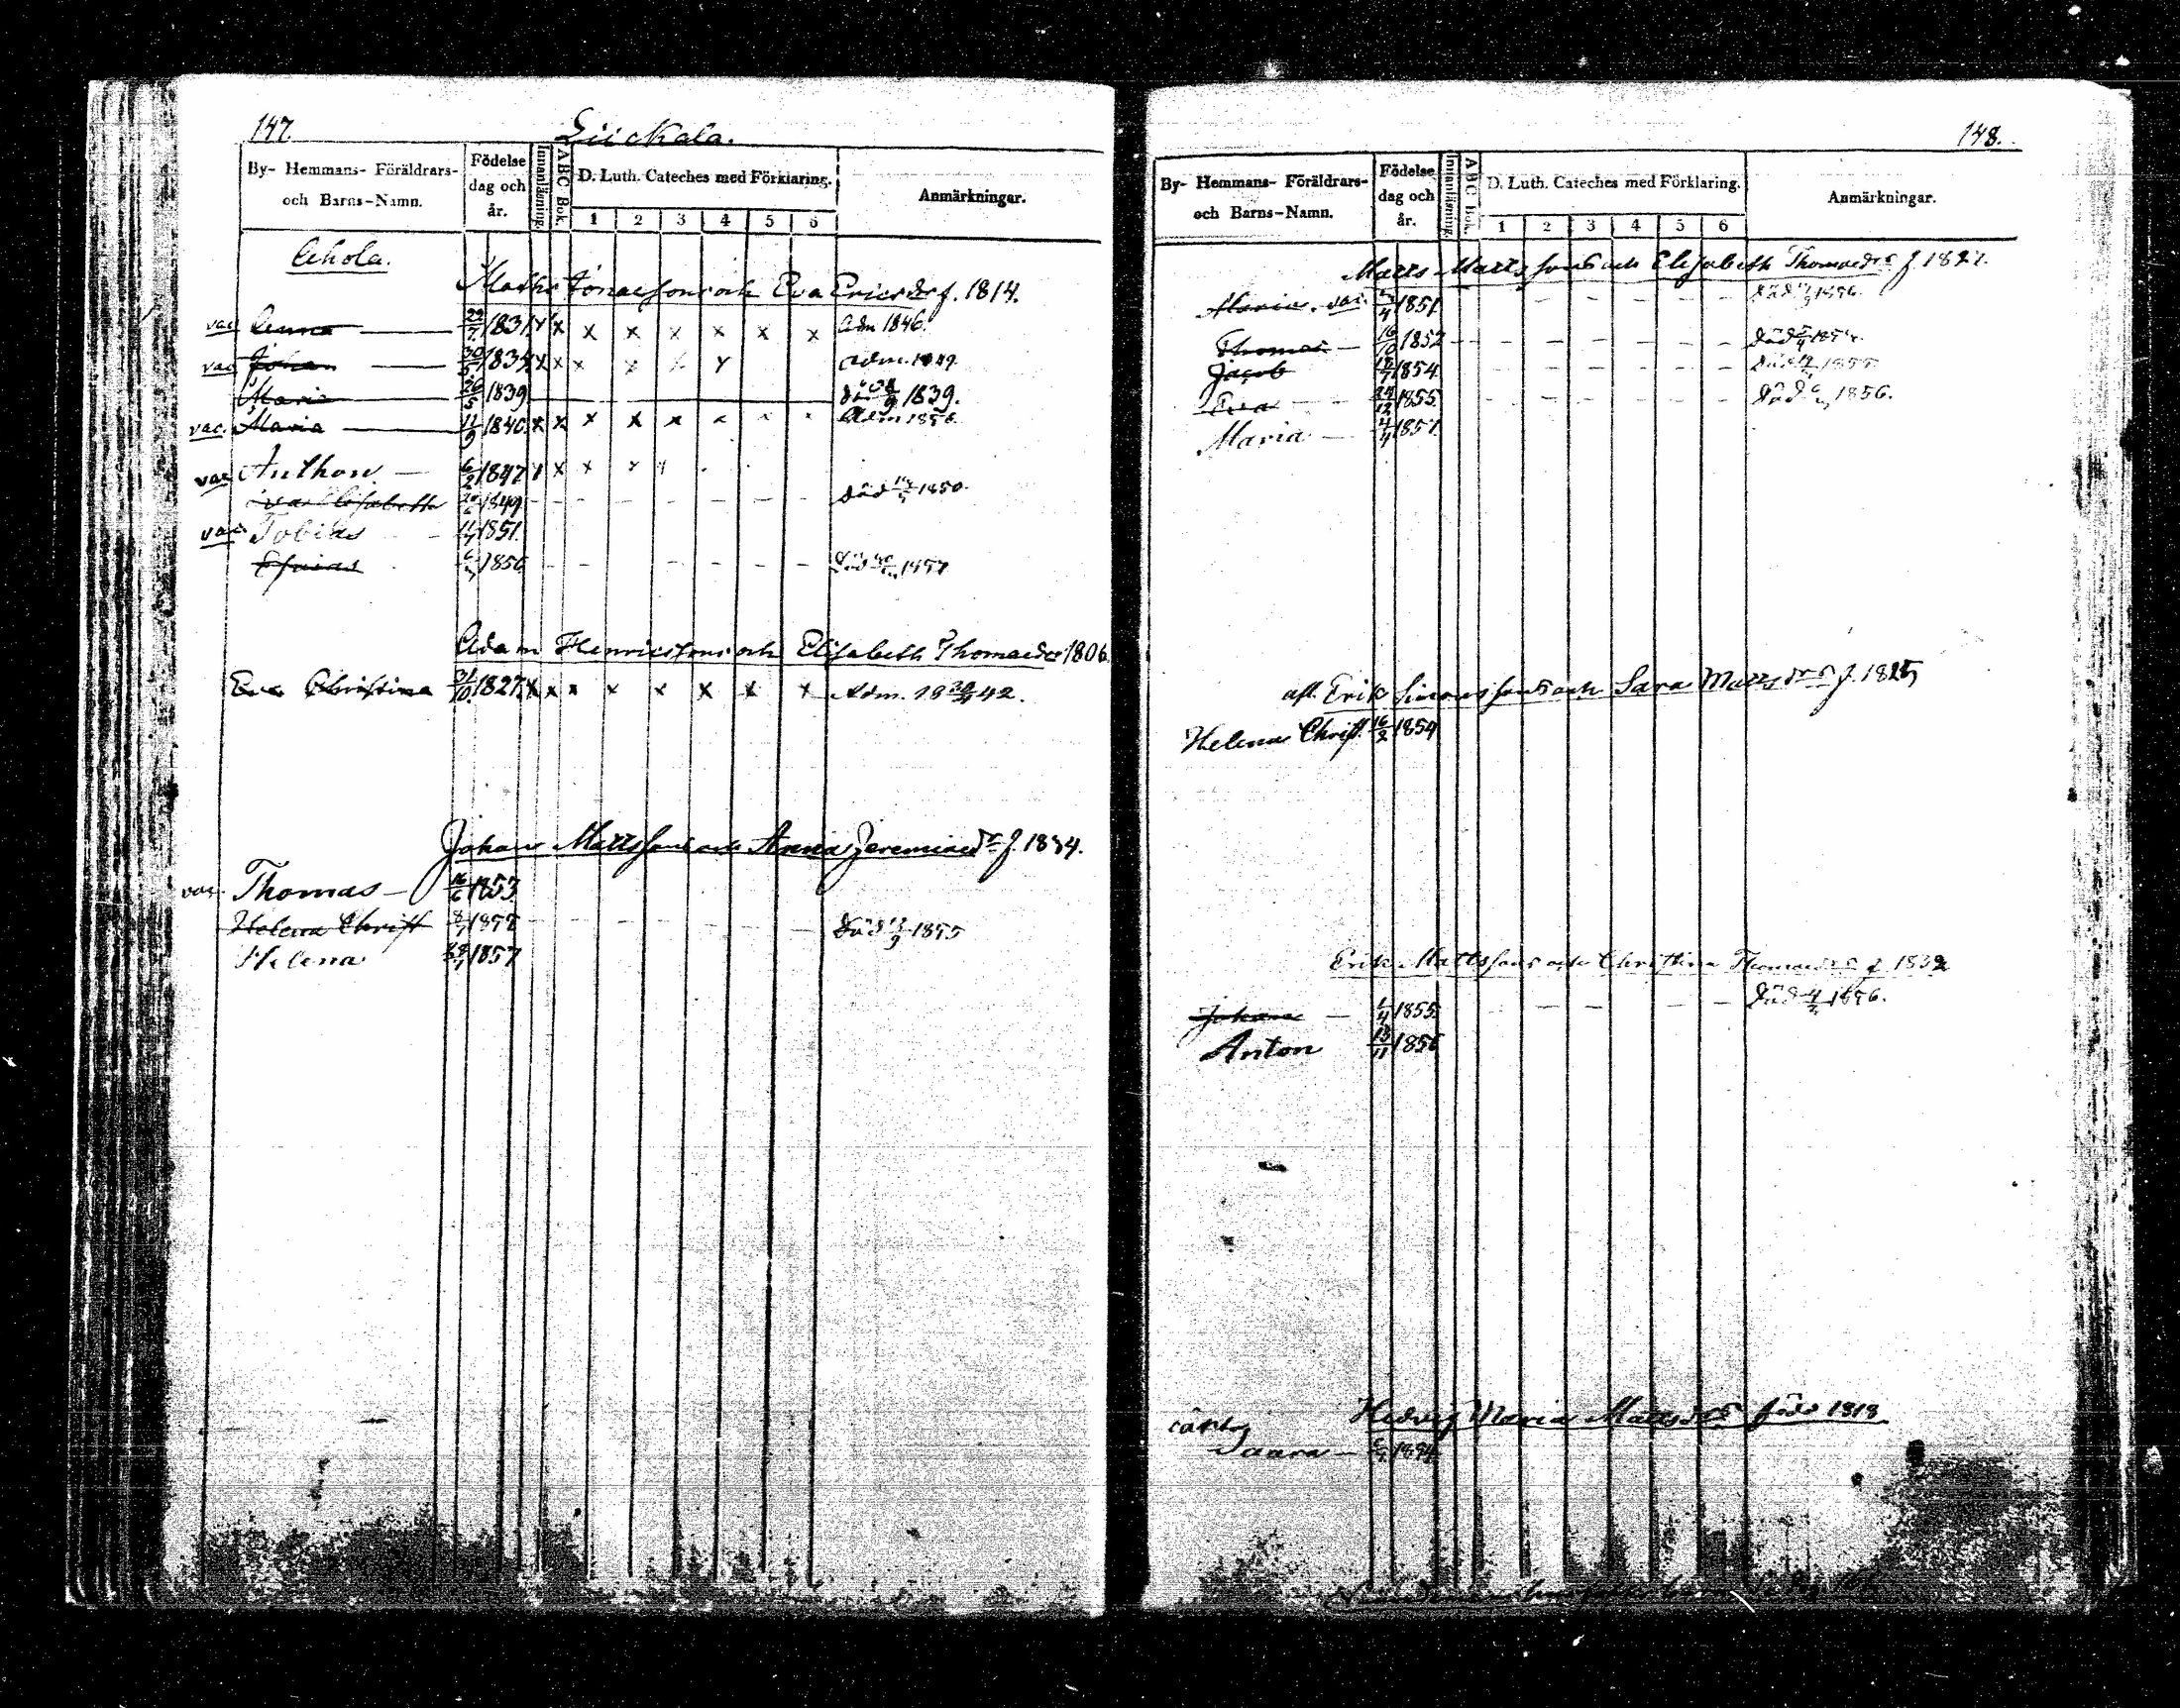 147.
Liickala.
By- Hemmans- Föräldrars-
och Barns-Namn.
Födelse
dag och
år.
Innanläsning.
ABC Bok.
D. Luth. Cateches med Förklaring.
1 2 3 4 5 6
Anmärkningar.
Ahola.
Matts Jonaessons och Eva Ericsdr f. 1814.
vac. Anna 22/7 1831 x x x x x x x x Adm 1846.
vac Johan 30/5 1834 x x x x x x adm. 1849.
Maria 26/5 1839 död 1839.
vac. Maria 11/9 1840 x x x x x x x x Adm 1856.
vac Anthon 6/2 1847 x x x x x
Elisabeth 1849 död 1850.
vac Tobias 11/4 1851.
1856 död 1857
Adam Henricssons och Elisabeth Thomaedr 1806
Eva Christina 31/10 1827 x x x x x x x x Adm. 1842.
Johan Mattssons och Anna Jeremiaedr f. 1834.
vac. Thomas 16/6 1853
Helena Christ död 1855
Helena 1857
148.
By- Hemmans- Föräldrars-
och Barns-Namn.
Födelse
dag och
år.
Innanläsning.
ABC Bok.
D. Luth. Cateches med Förklaring.
1 2 3 4 5 6
Anmärkningar.
Matts Mattssons och Elisabeth Thomaedr f. 1827.
Maria vac. 1851 död 1856.
Thomas 16/10 1852 död
Jacob 1854 död 1855
Eva 24/12 1855 död 1856.
Maria 4/4 1857
afl. Erik Simonssons och Sara Mattsdr f. 1825
Helena Christ. 16/2 1854
Erik Mattssons och Christina Thomaedr f 1832
Johan 1855 död 1856.
Anton 13/11 1856
Hedvig Maria Mattsdr född 1818
Saara